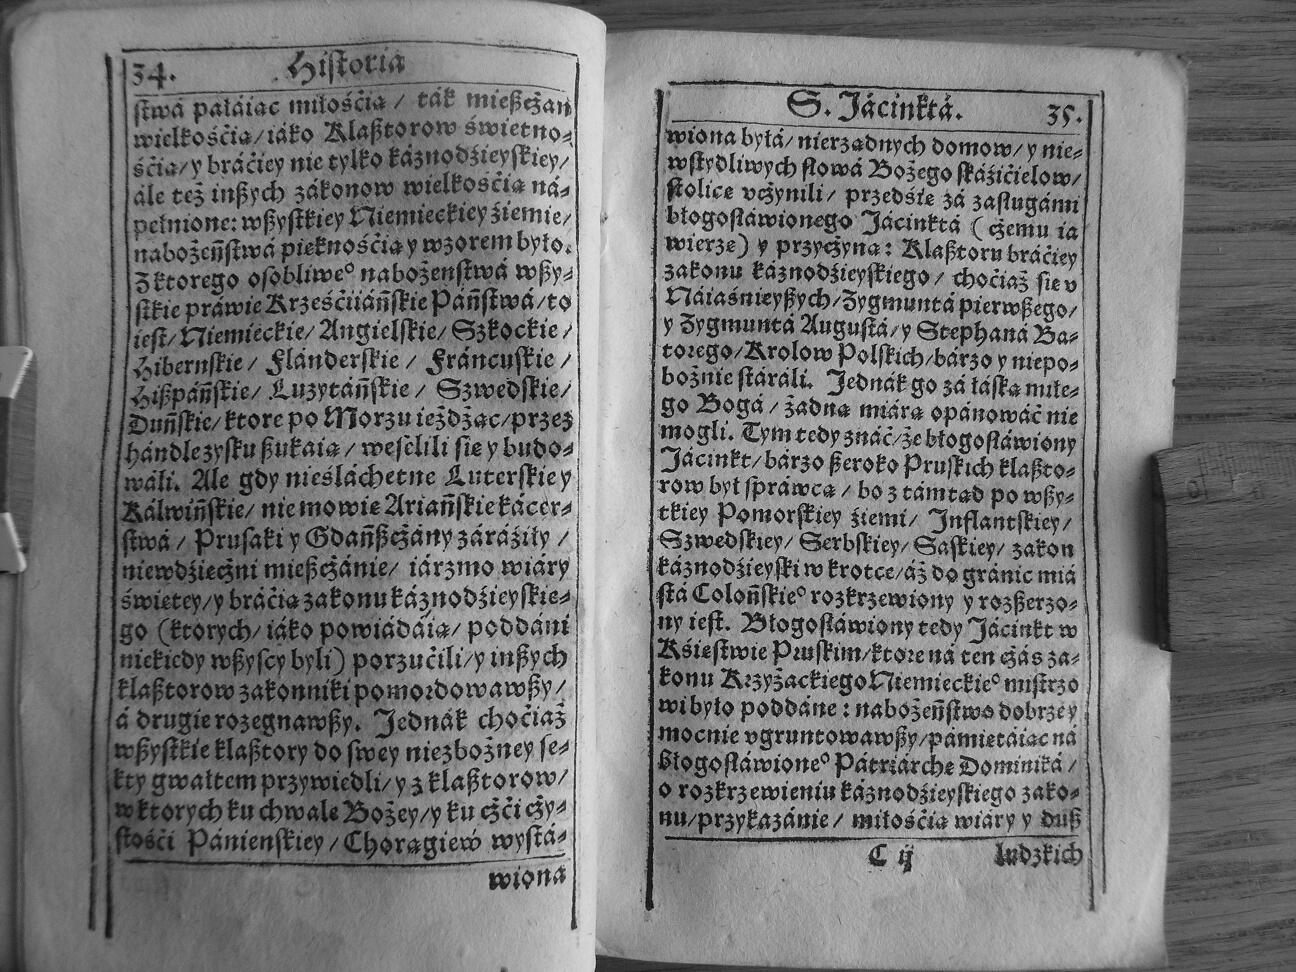 34. Historia
ſtwá pałáiąc miłośćią / ták mieſzcżan
wielkośćią/iáko Klaſztorow świetno⸗
śćią/y bráćiey nie tylko káznodźieyſkiey/
ále też inſzych zákonow wielkośćią ná⸗
pełnione: wſzyſtkiey Niemieckiey źiemie/
nabożeńſtwá pięknośćią y wzorem było.
Z ktorego oſobliweº nabożenſtwá wſzy⸗
ſtkie práwie Krześćiiáńſkie Páńſtwá/to
ieſt/Niemieckie/Angielſkie/Szkockie/
Hibernſkie / Flánderſkie / Fráncuſkie /
Hiſzpáńſkie/ Luzytáńſkie / Szwedſkie/
Duńſkie/ktore po Morzu ieżdżąc/przez
hándle zyſku ſzukáią / weſelili ſie y budo⸗
wáli. Ale gdy nieśláchetne Luterſkie y
Kálwińſkie/ nie mowię Ariańſkie kácer⸗
ſtwá / Pruſaki y Gdańſzcżány záráźiły /
niewdźięcżni mieſzcżánie/ iárzmo wiáry
świętey/y bráćią zakonu káznodźieyſkie⸗
go (ktorych/ iáko powiádáią/ poddáni
niekiedy wſzyſcy byli) porzućili/y inſzych
klaſztorow zakonniki pomordowawſzy/
á drugie rozegnawſzy. Jednák choćiaż
wſzyſtkie klaſztory do ſwey niezbożney ſe⸗
kty gwałtem przywiedli/y z klaſztorow/
w ktorych ku chwale Bożey/y ku cżći cży⸗
ſtośći Pánienſkiey/Chorągiew wyſtá⸗
wiona
S. Jácinktá. 35.
wiona byłá/ nierządnych domow/y nie⸗
wſtydliwych ſłowá Bożego ſkáźićielow/
ſtolice vcżynili/ przedśię zá zaſługámi
błogoſłáwionego Jácinktá ( cżemu ia
wierzę) y przycżyną: Klaſztoru bráćiey
zakonu káznodźieyſkiego/ choćiaż ſie v
Náiaśnieyſzych/Zygmuntá pierwſzego/
y Zygmuntá Auguſtá/y Stephaná Ba⸗
torego/Krolow Polſkich/bárzo y niepo⸗
bożnie ſtáráli. Jednák go zá łáſką miłe⸗
go Bogá / żadną miárą opánowáć nie
mogli. Tym tedy znáć/że błogoſłáwiony
Jácinkt/bárzo ſzeroko Pruſkich klaſzto⸗
row był ſpráwcą / bo z támtąd po wſzy⸗
tkiey Pomorſkiey źiemi/ Jnflantſkiey/
Szwedſkiey/ Serbſkiey/ Saſkiey/ zakon
káznodźieyſki w krotce/áż do gránic miá
ſtá Colońſkieº rozkrzewiony y rozſzerzo⸗
ny ieſt. Błogoſłáwiony tedy Jácinkt w
Kśięſtwie Pruſkim/ktore ná ten cżás za⸗
konu Krzyżackiego Niemieckieº miſtrzo
wi było poddáne : nabożeńſtwo dobrze y
mocnie vgruntowawſzy/pámiętáiąc ná
Błogoſłáwioneº Pátriárchę Dominiká /
o rozkrzewieniu káznodźieyſkiego zako⸗
nu/przykazánie / miłośćią wiáry y duſz
C ij ludzkich